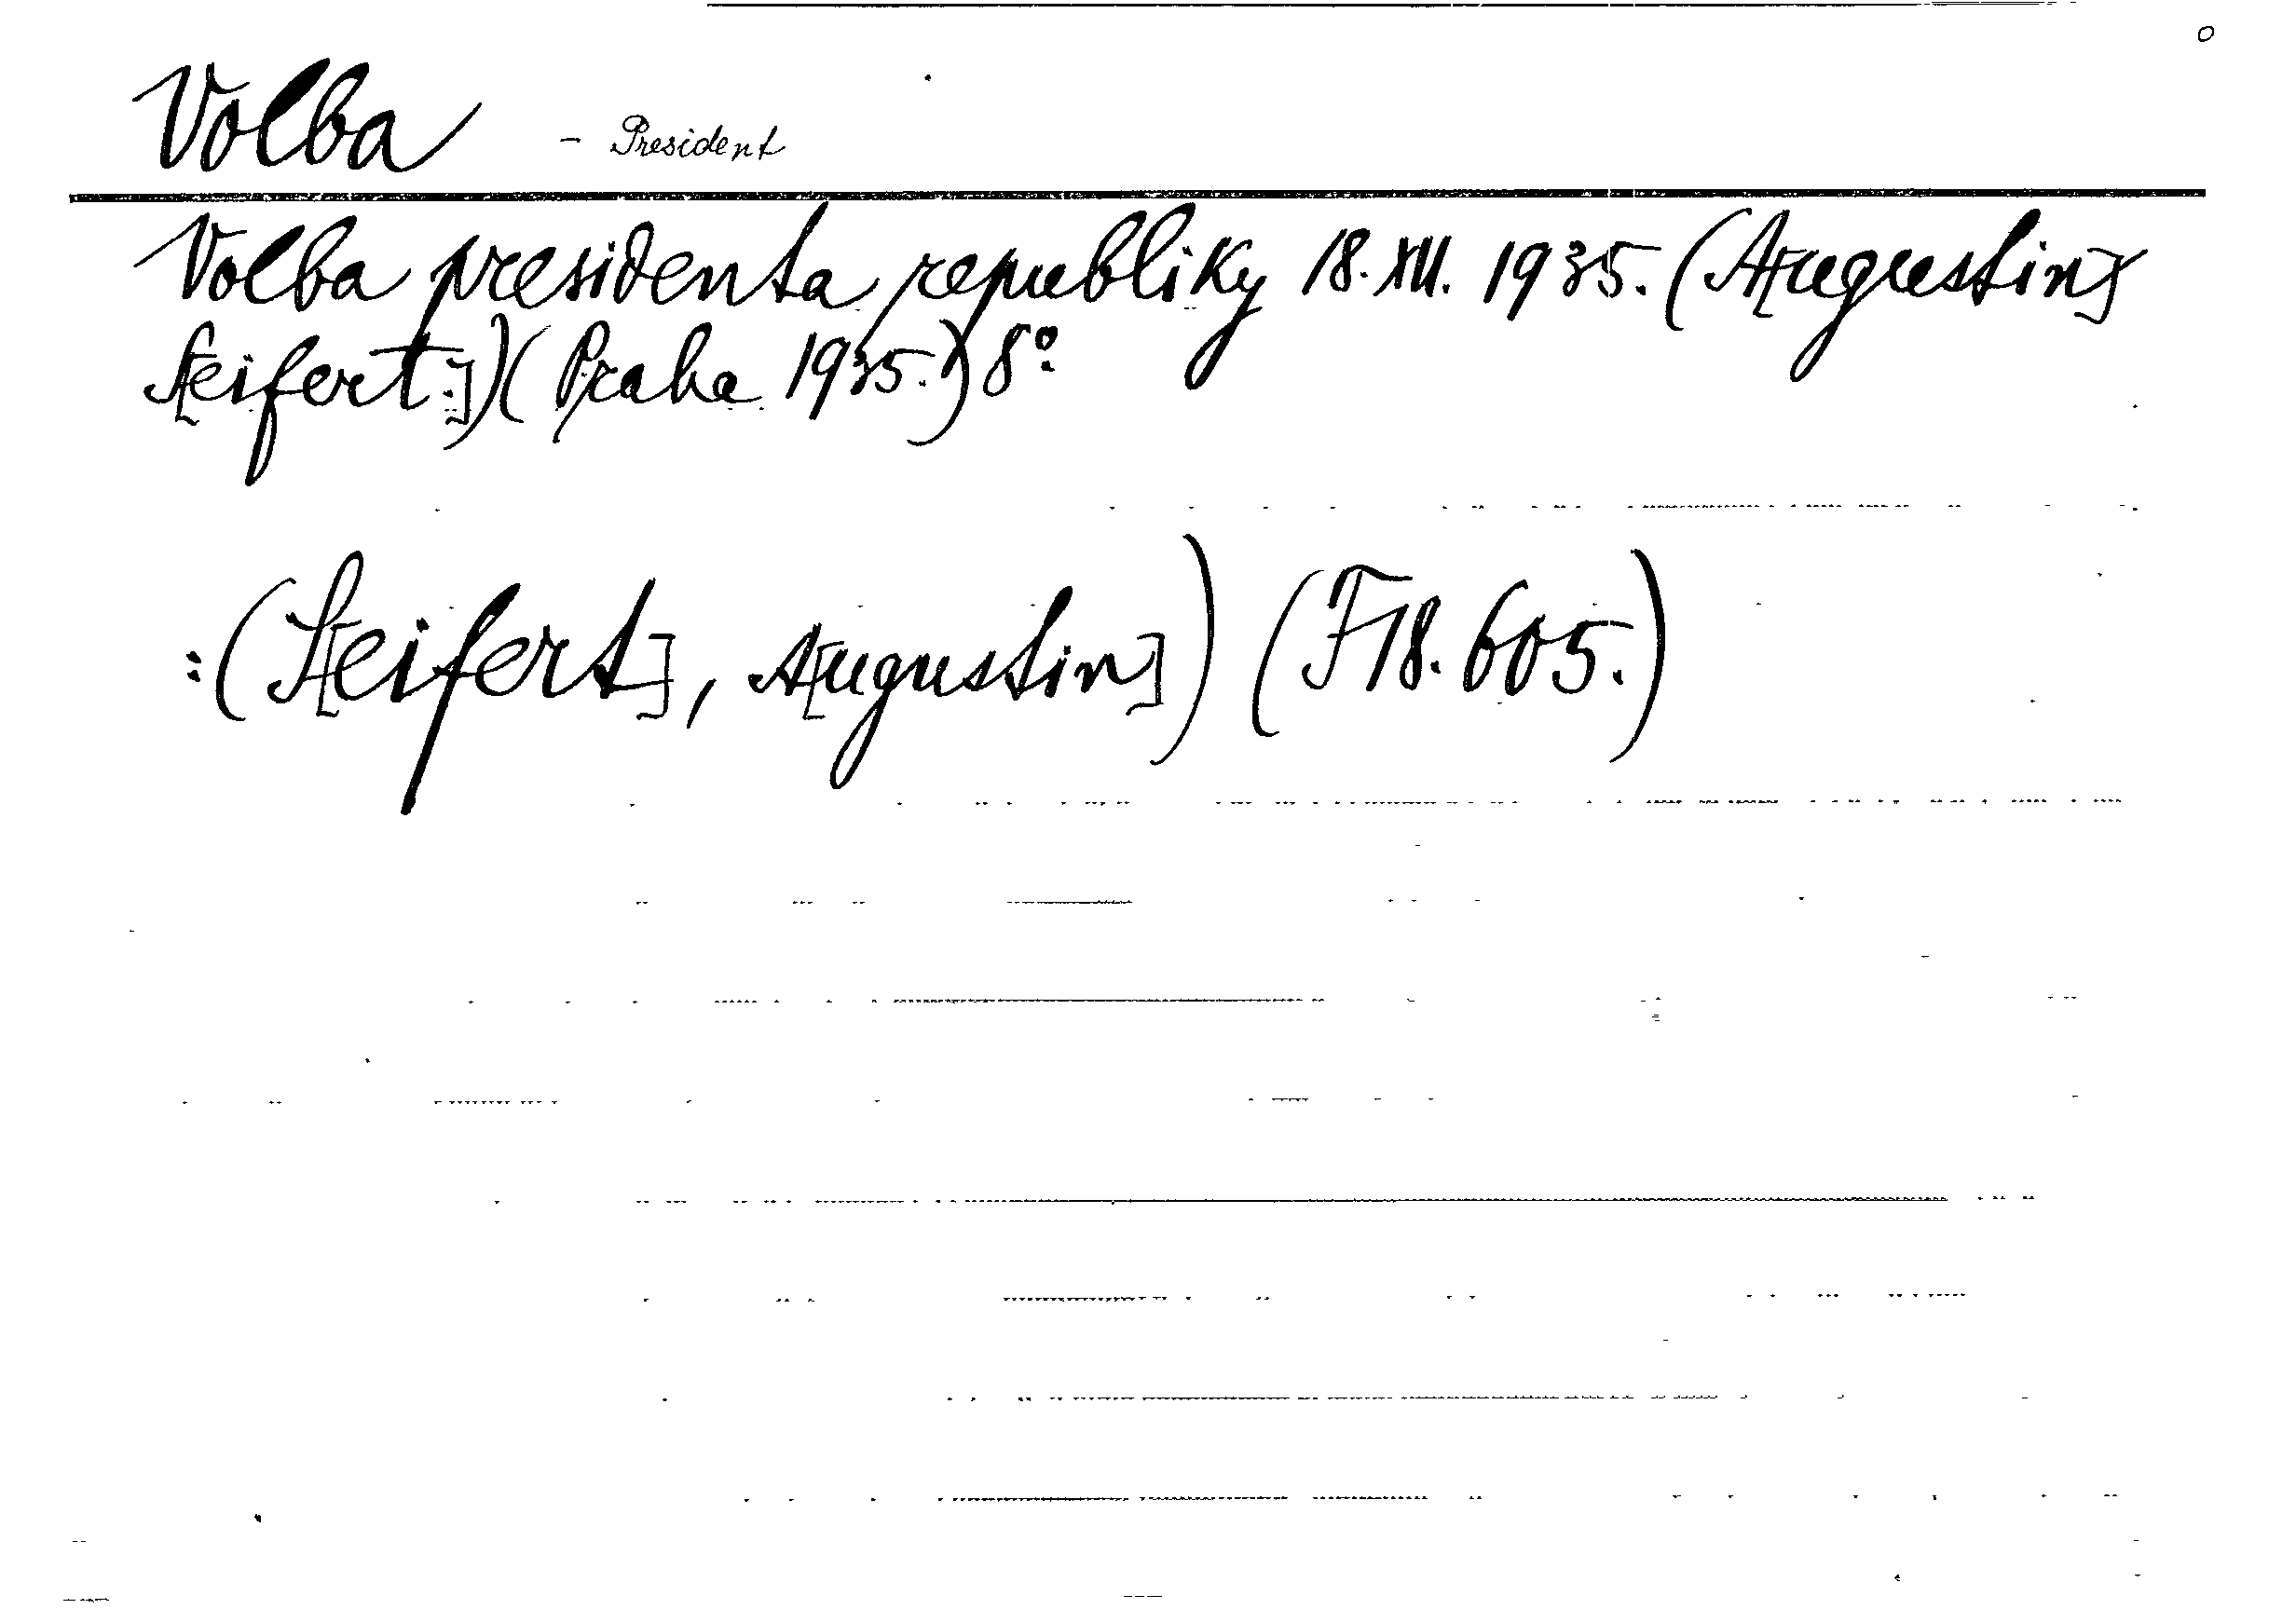 Volba - President
Volba presidenta republiky 18. XII. 1935. (A[ugustin]
S[eifert.]) (Praha 1935.) 8°.
:(S[eifert], A[ugustin]) (F18.605.)